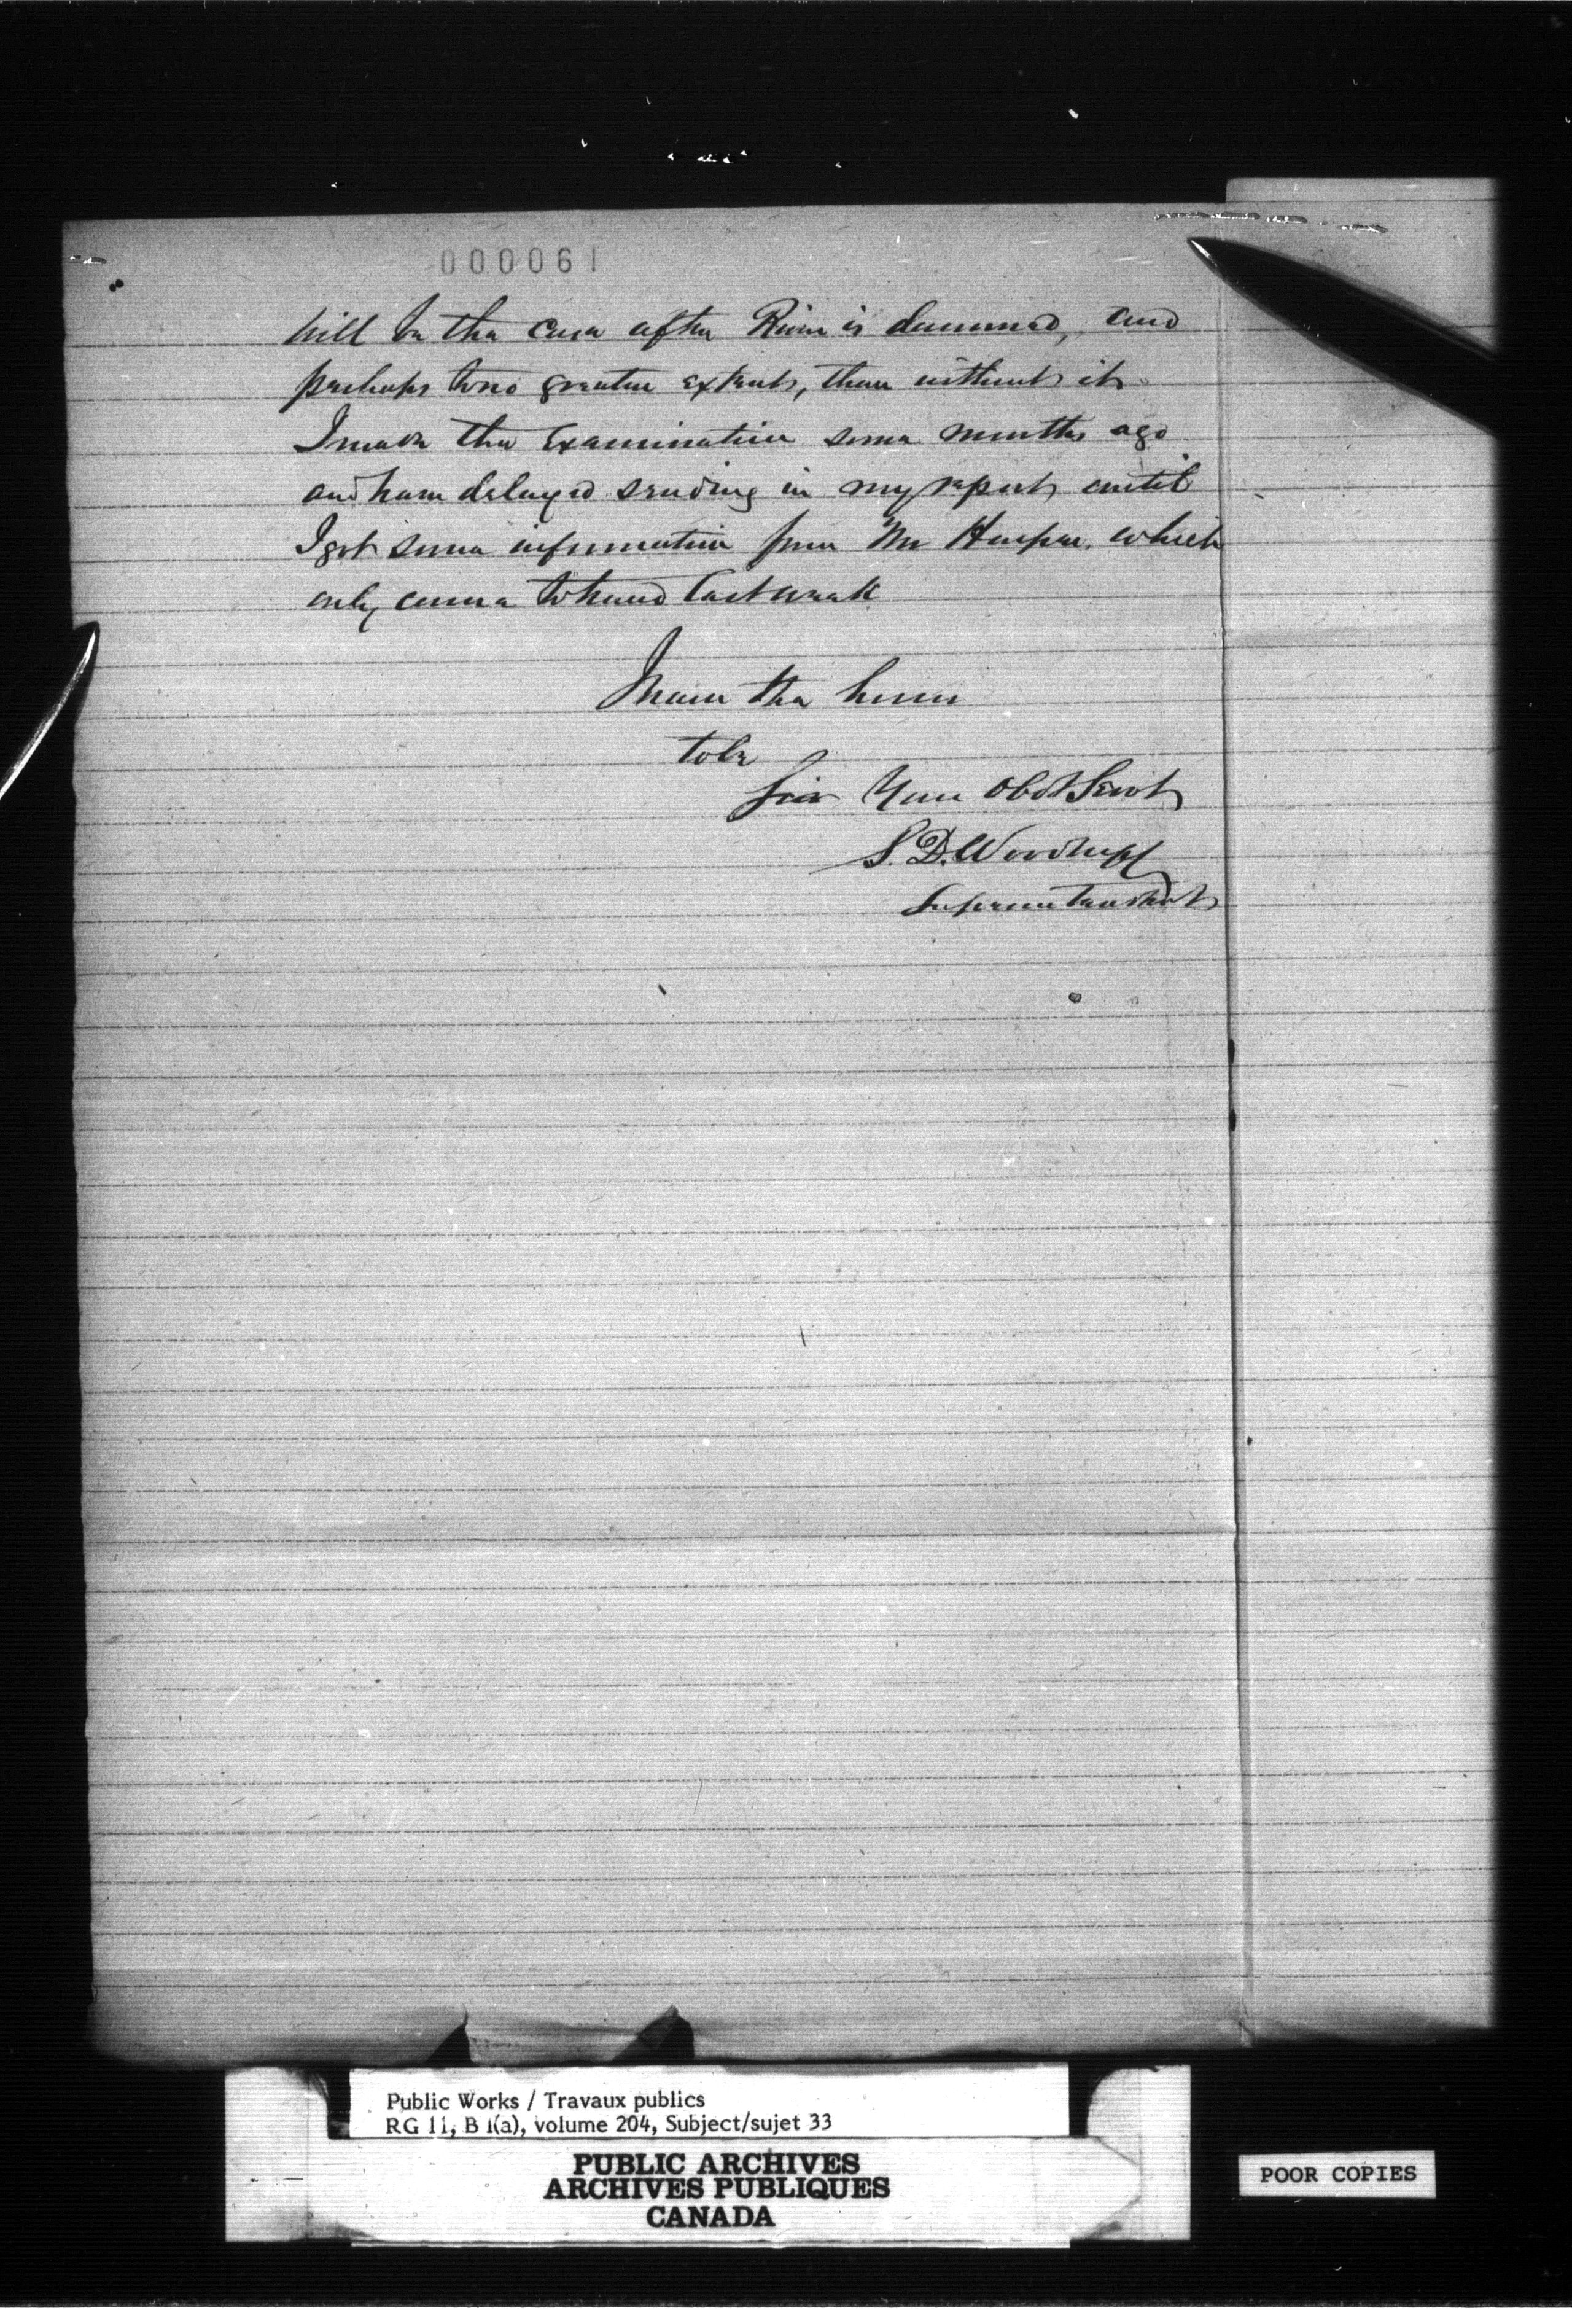 000061
will be the case after River is dammed, and
perhaps to no greater extent, than without it.
I made the Examination some months ago
and have delayed sending in my report until
I got some information from Mr Harper. which
only came to hand last week
I have the honor
to be
Sir Your Obdt Servt
S. D. Woodruff
Superintendent
Public Works / Travaux publics
RG 11, B 1(a), volume 204, Subject/sujet 33
PUBLIC ARCHIVES
ARCHIVES PUBLIQUES
CANADA
POOR COPIES